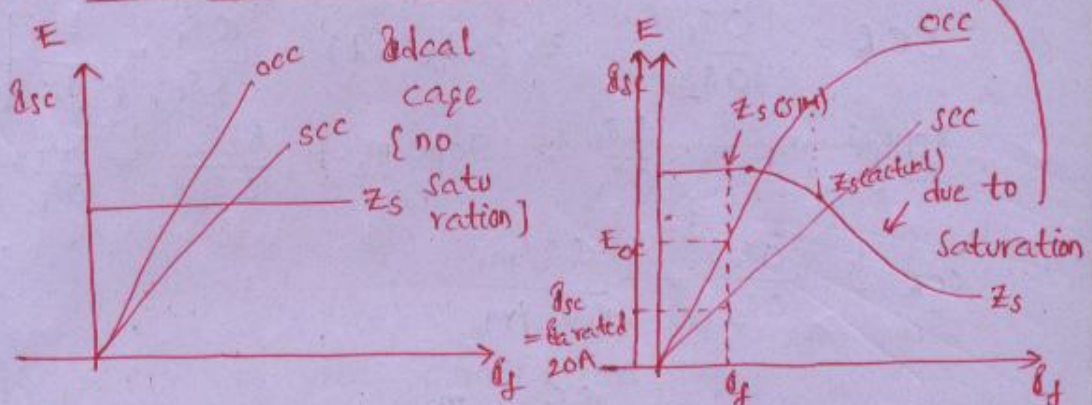 E
Isc
OCC
SCC
Zs
Ideal
case
{ no
satu
ration]
If
E
Isc
OCC
SCC
Zs(SIM)
Zs(actual)
due to
saturation
Zs
Eoc
Isc
= Ia rated
20A
If
If